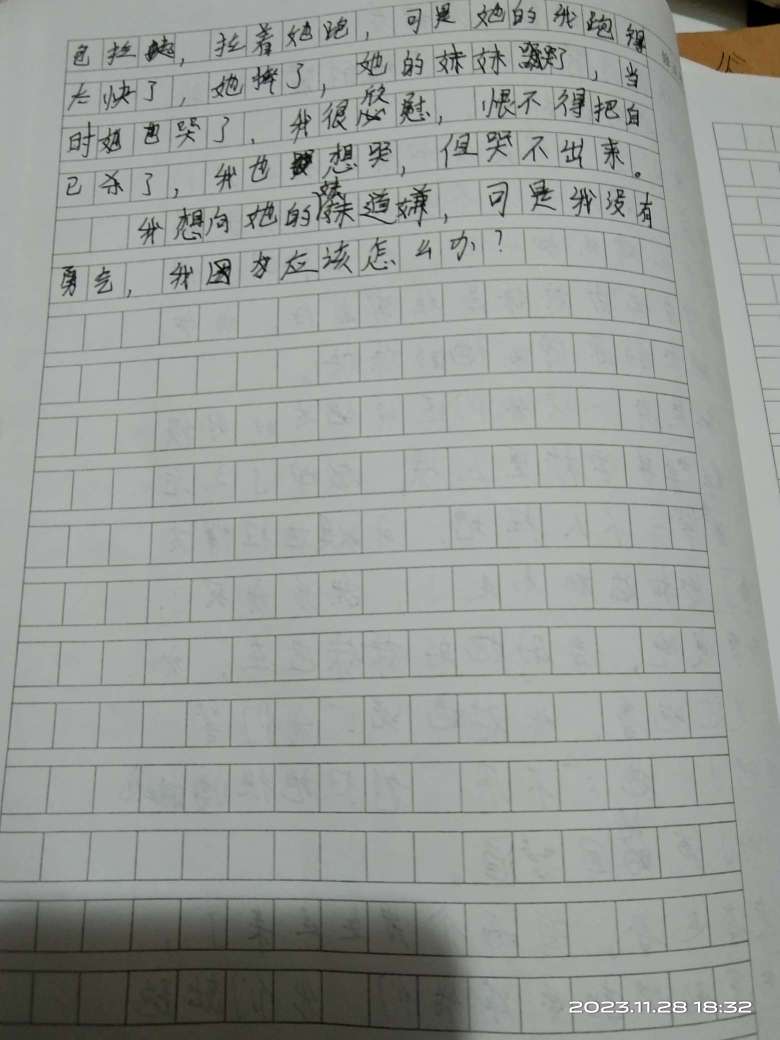 包拉着，拉着她跑，可是她的我跑得
太快了，她摔了，她的妹妹哭了，当
时她也哭了，我很慰，恨不得把自
己杀了，我也想哭，但哭不出来。
我想向她的妹道嫌，可是我没有
勇气，我因为应该怎么办？
2023.11.28 18:32